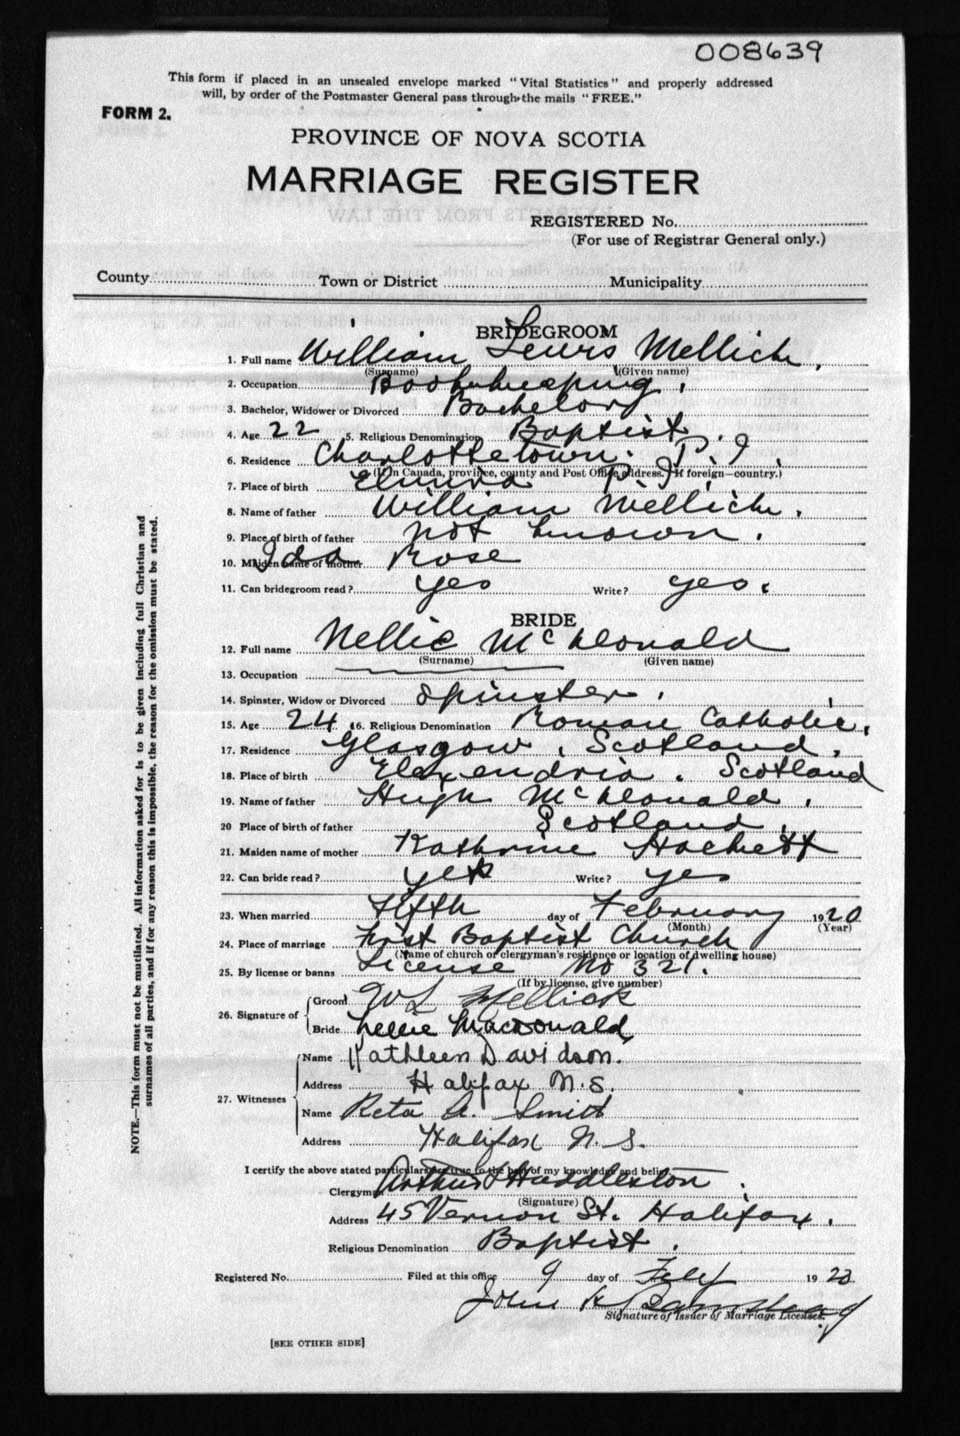 008639
This form if placed in an unsealed envelope marked "Vital Statistics" and properly addressed
will, by order of the Postmaster General pass through the mails "FREE."
FORM 2.
PROVINCE OF NOVA SCOTIA
MARRIAGE REGISTER
REGISTERED No.
(For use of Registrar General only.)
County Town or District Municipality
BRIDEGROOM
1. Full name William Lewis Mellick.
(Surname) (Given name)
2. Occupation Bookkeeping.
3. Bachelor, Widower or Divorced Bachelor
4. Age 22 5. Religious Denomination Baptist.
6. Residence Charlottetown. P. I.
(If in Canada, province, county and Post Office address. If foreign—country.)
7. Place of birth Elmira P. I.
8. Name of father William Mellick.
9. Place of birth of father not known.
10. Maiden name of mother Ida Rose
11. Can bridegroom read? yes Write? yes.
BRIDE
12. Full name Nellie McDonald
(Surname) (Given name)
13. Occupation
14. Spinster, Widow or Divorced Spinster.
15. Age 24 16. Religious Denomination Roman Catholic.
17. Residence Glasgow, Scotland.
18. Place of birth Elexendria. Scotland
19. Name of father Hugh McDonald.
20 Place of birth of father Scotland.
21. Maiden name of mother Kathrine Hackett
22. Can bride read? yes Write? yes
23. When married Fifth day of February 1920
(Month) (Year)
24. Place of marriage First Baptist Church
(Name of church or clergyman's residence or location of dwelling house)
25. By license or banns License No 321.
(If by license, give number)
26. Signature of Groom W L Mellick
Bride Nellie Macdonald
27. Witnesses
Name Kathleen Davidson.
Address Halifax N.S.
Name Reta A. Smith
Address Halifax N. S.
I certify the above stated particulars are true to the best of my knowledge and belief.
Clergyman Arthur Huddleston.
(Signature)
Address 45 Vernon St. Halifax.
Religious Denomination Baptist.
Registered No. Filed at this office 9 day of Feby 1920
John H
Signature of Issuer of Marriage Licenses.
[SEE OTHER SIDE]
NOTE.—This form must not be mutilated. All information asked for is to be given including full Christian and
surnames of all parties, and if for any reason this is impossible, the reason for the omission must be stated.